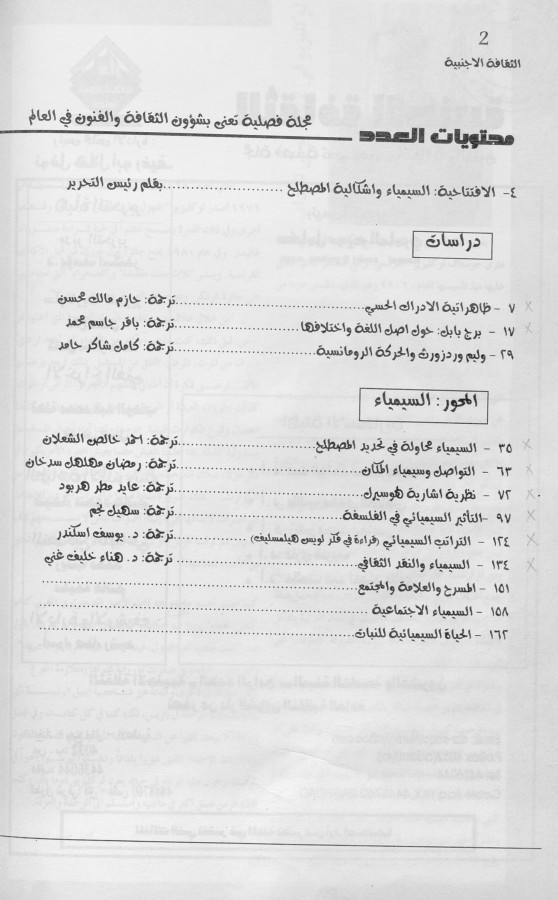 2
الثقافة الاجنبية
مجلة فصلية تعنى بشؤون الثقافة والفنون في العالم
محتويات العدد
٤- الافتتاحية: السيمياء واشكالية المصطلح ........................بقلم رئيس التحرير
دراسات
٧ - ظاهراتية الادراك الحسي........................ترجمة: حازم مالك محسن
١٧ - برج بابل: حول اصل اللغة واختلافها........................ترجمة: باقر جاسم محمد
٢٩ - وليم وردزورث والحركة الرومانسية........................ترجمة: كامل شاكر حامد
المحور: السيمياء
٣٥ - السيمياء محاولة في تحديد المصطلح........................ترجمة: احمد خالص الشعلان
٦٣ - التواصل وسيمياء المكان........................ترجمة: رمضان مهلهل سدخان
٧٢ - نظرية اشارية هوسيرل........................ترجمة: عابد مطر هربود
٩٧ -التأثير السيميائي في الفلسفة........................ترجمة: سهيل نجم
١٢٤ - التراتب السيميائي (قراءة في فكر لويس هيلمسليف)........................ترجمة: د. يوسف اسكندر
١٣٤ - السيمياء والنقد الثقافي........................ترجمة: د. هناء خليف غني
١٥١ - المسرح والعلامة والمجتمع........................
١٥٨ - السيمياء الاجتماعية........................
١٦٢ - الحياة السيميائية للنبات........................